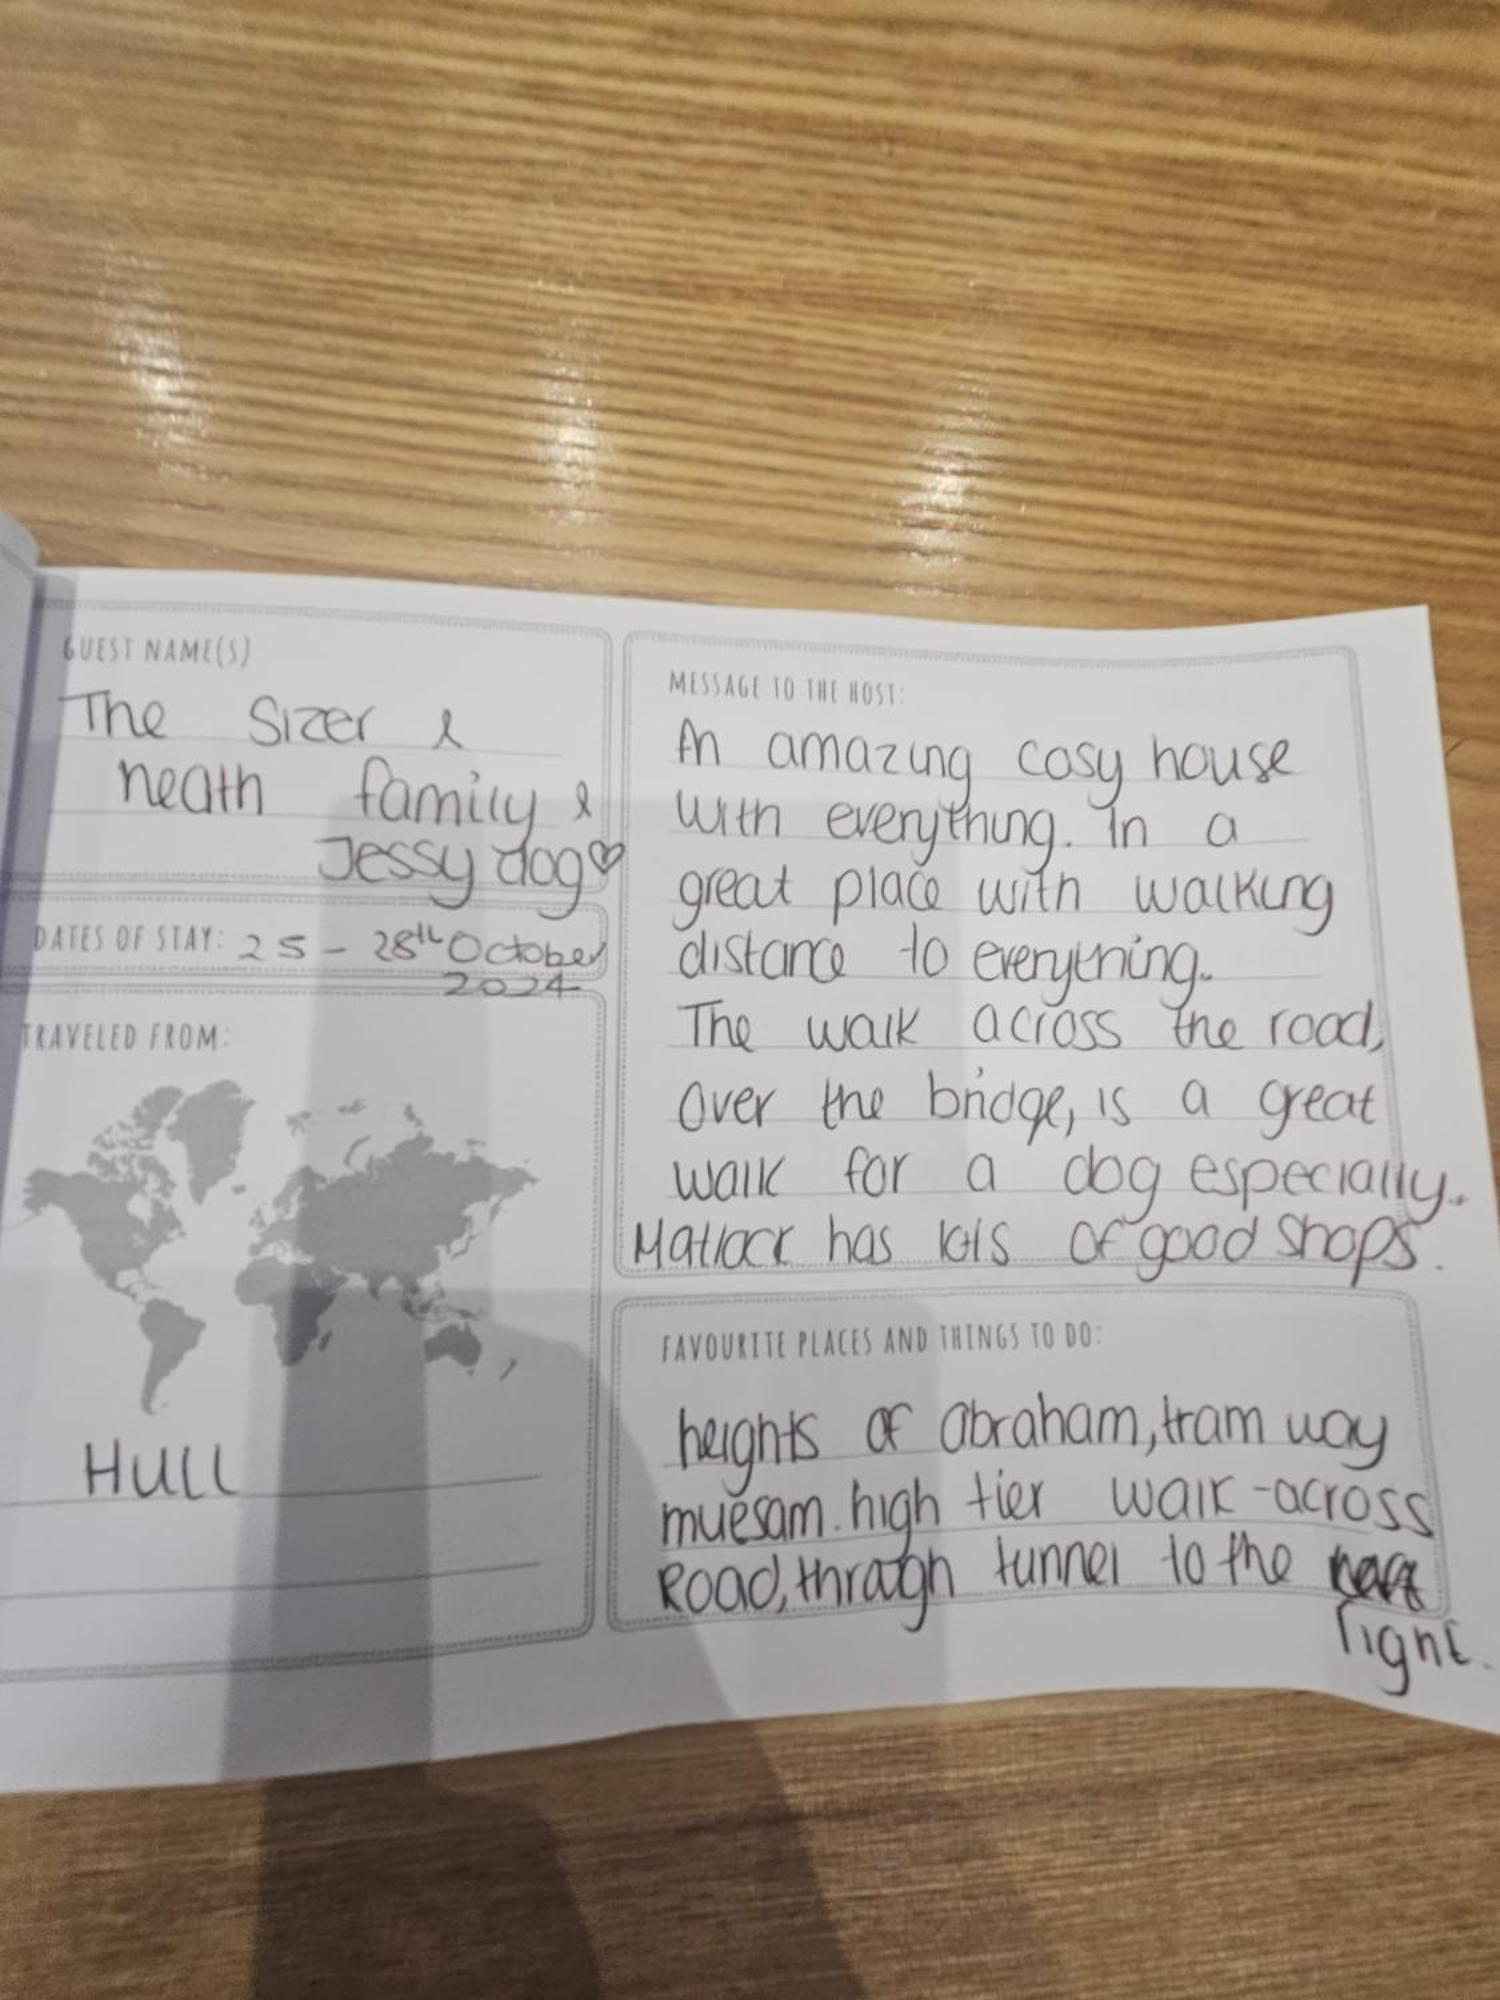 GUEST NAME(S)
The Sizer &
neath family &
Jessy dog♡
DATES OF STAY: 25 - 28th October
2024
TRAVELED FROM:
HULL
MESSAGE TO THE HOST:
An amazing cosy house
with everything. In a
great place with walking
distance to everything.
The walk across the road,
over the bridge, is a great
walk for a dog especially.
Matlock has lots of good shops.
FAVOURITE PLACES AND THINGS TO DO:
heights of abraham, tram way
muesam. high tier walk - across
Road, through tunnel to the
right.